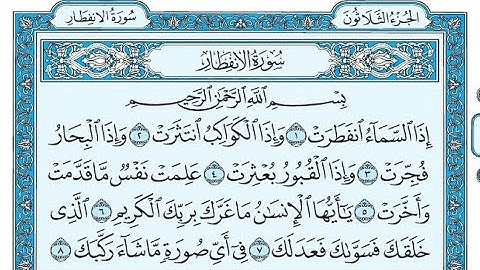 الجزء الثلاثون
سورة الانفطار
سورة الانفطار
بسم الله الرحمن الرحيم
إِذَا السَّمَاءُ انفَطَرَتْ ١ وَإِذَا الْكَوَاكِبُ انتَثَرَتْ ٢ وَإِذَا الْبِحَارُ
فُجِّرَتْ ٣ وَإِذَا الْقُبُورُ بُعْثِرَتْ ٤ عَلِمَتْ نَفْسٌ مَّا قَدَّمَتْ
وَأَخَّرَتْ ٥ يَٰٓأَيُّهَا الْإِنسَٰنُ مَا غَرَّكَ بِرَبِّكَ الْكَرِيمِ ٦ الَّذِي
خَلَقَكَ فَسَوَّىٰكَ فَعَدَلَكَ ٧ فِي أَيِّ صُورَةٍ مَّا شَاءَ رَكَّبَكَ ٨